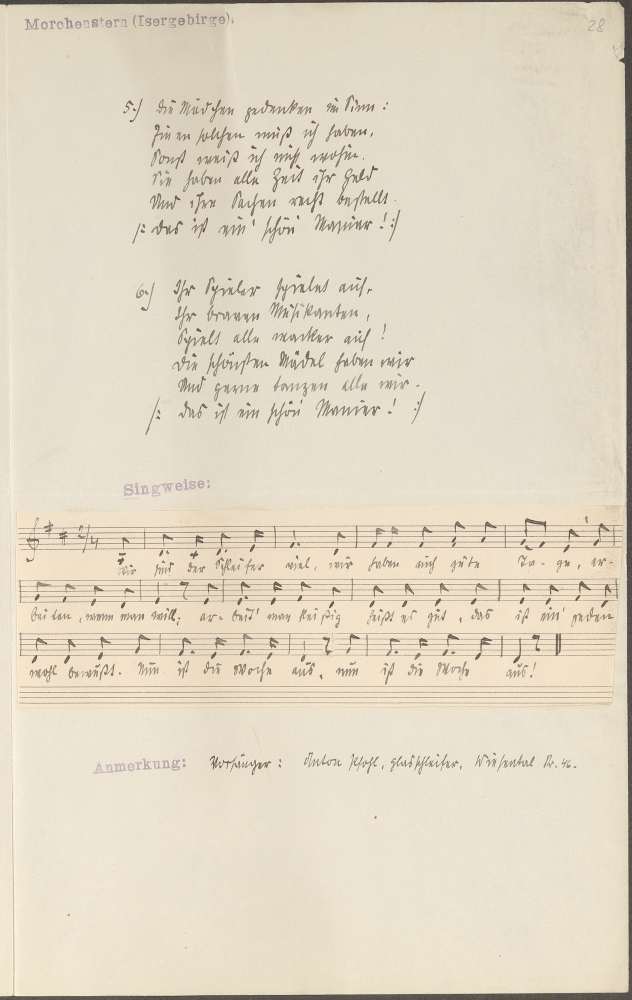 Morchenstern (Isergebirge).
28
5.) Die Mädchen gedenken im Sinn:
Finen solchen muß ich haben,
Sonst weiß ich nicht wohin.
Sie haben alle Zeit ihr Geld
Und ihre Sachen recht bestellt
/: das ist ein' schöni Manier! :/
6.) Ihr Spieler spielet auf,
Ihr braven Musikanten,
Spielt alle wacker auf!
Die schönsten Mädel haben wir
Und gerne tanzen alle wir.
/: das ist ein schöni Manier! :/
Singweise:
2/4
Wir sind der Schleifer viel, wir haben auch gute Ta-ge, ar-
beiten, wenn man will; ar-beit' man fleißig heißt es gut, das ist ein' jeden
wohl bewußt. Nun ist die Woche aus, nun ist die Woche aus!
Anmerkung: Vorsänger: Anton Pfohl, Glasschleifer, Wiesental Nr. 46.